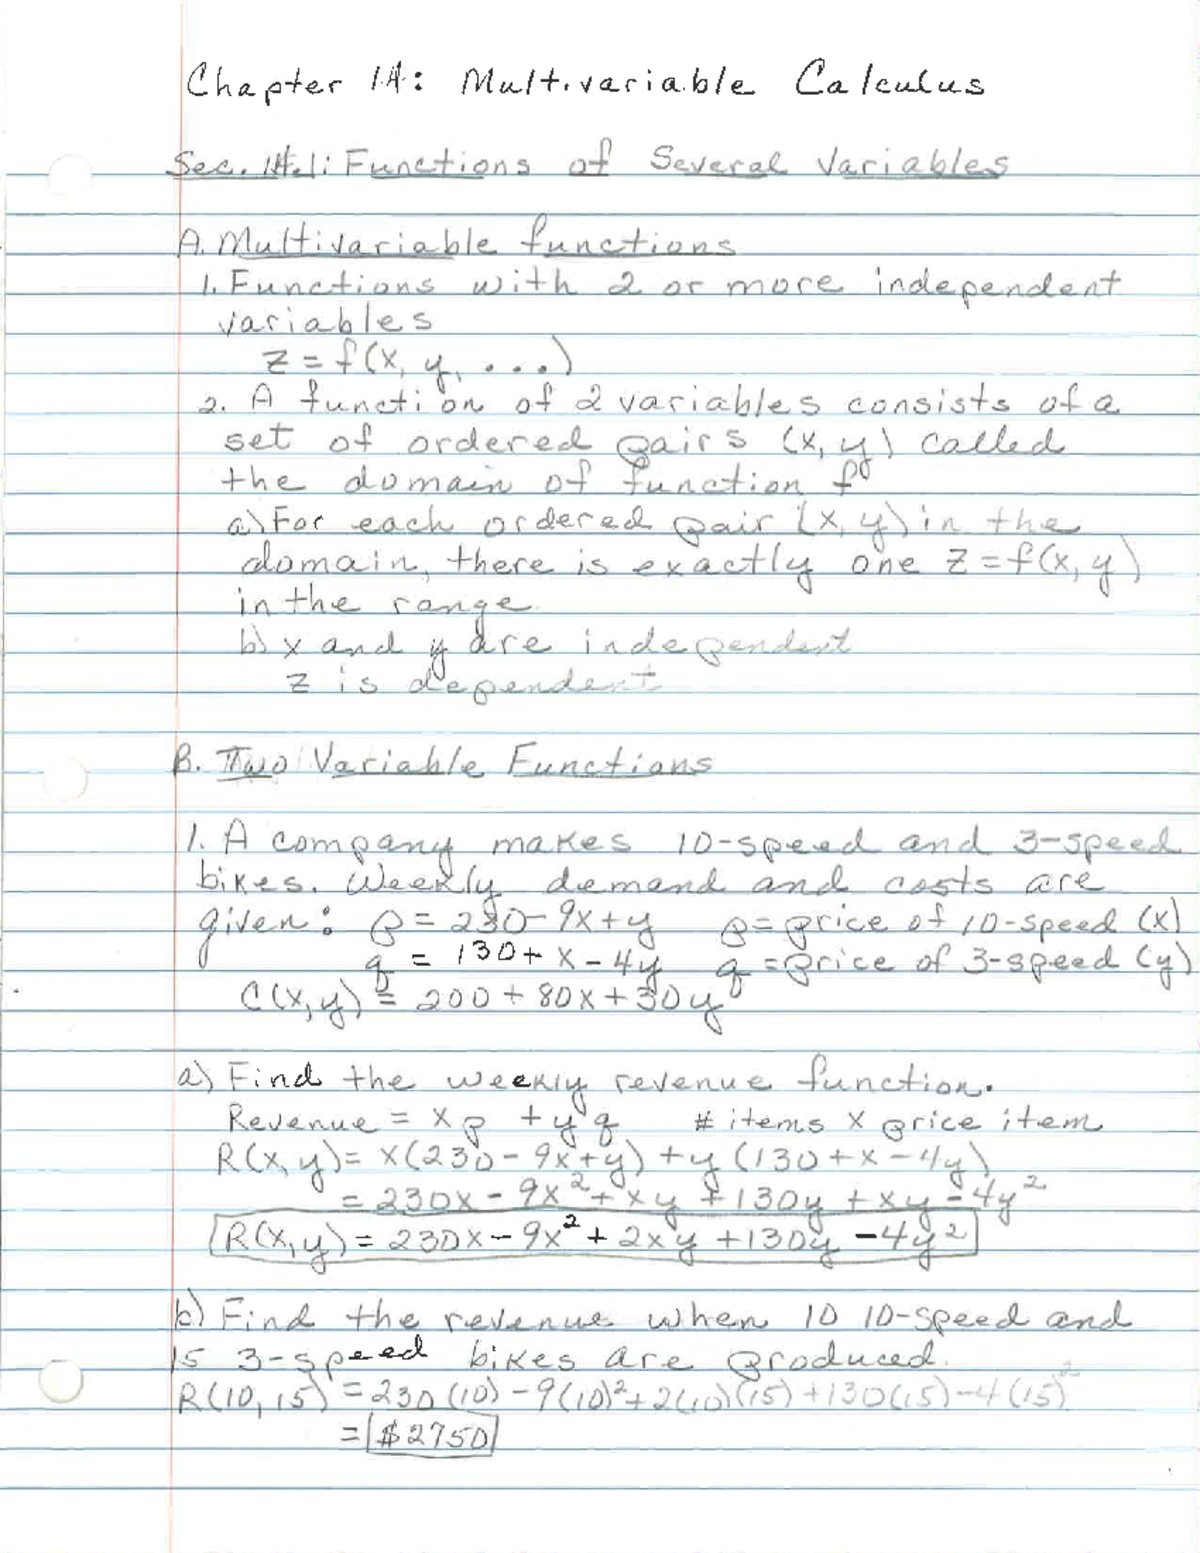 Chapter 14: Multivariable Calculus
Sec. 14.1: Functions of Several Variables
A. Multivariable functions
1. Functions with 2 or more independent
variables
z = f(x, y, ...)
2. A function of 2 variables consists of a
set of ordered pairs (x, y) called
the domain of function f
a) For each ordered pair (x, y) in the
domain, there is exactly one z = f(x, y)
in the range.
b) x and y are independent
z is dependent
B. Two Variable Functions
1. A company makes 10-speed and 3-speed
bikes. Weekly demand and costs are
given: p = 230 - 9x + y p = price of 10-speed (x)
q = 130 + x - 4y q = price of 3-speed (y)
C(x, y) = 200 + 80x + 30y
a) Find the weekly revenue function.
Revenue = xp + yq # items x price item
R(x, y) = x(230 - 9x + y) + y(130 + x - 4y)
= 230x - 9x² + xy + 130y + xy - 4y²
R(x, y) = 230x - 9x² + 2xy + 130y - 4y²
b) Find the revenue when 10 10-speed and
15 3-speed bikes are produced.
R(10, 15) = 230(10) - 9(10)² + 2(10)(15) + 130(15) - 4(15)²
= $2750